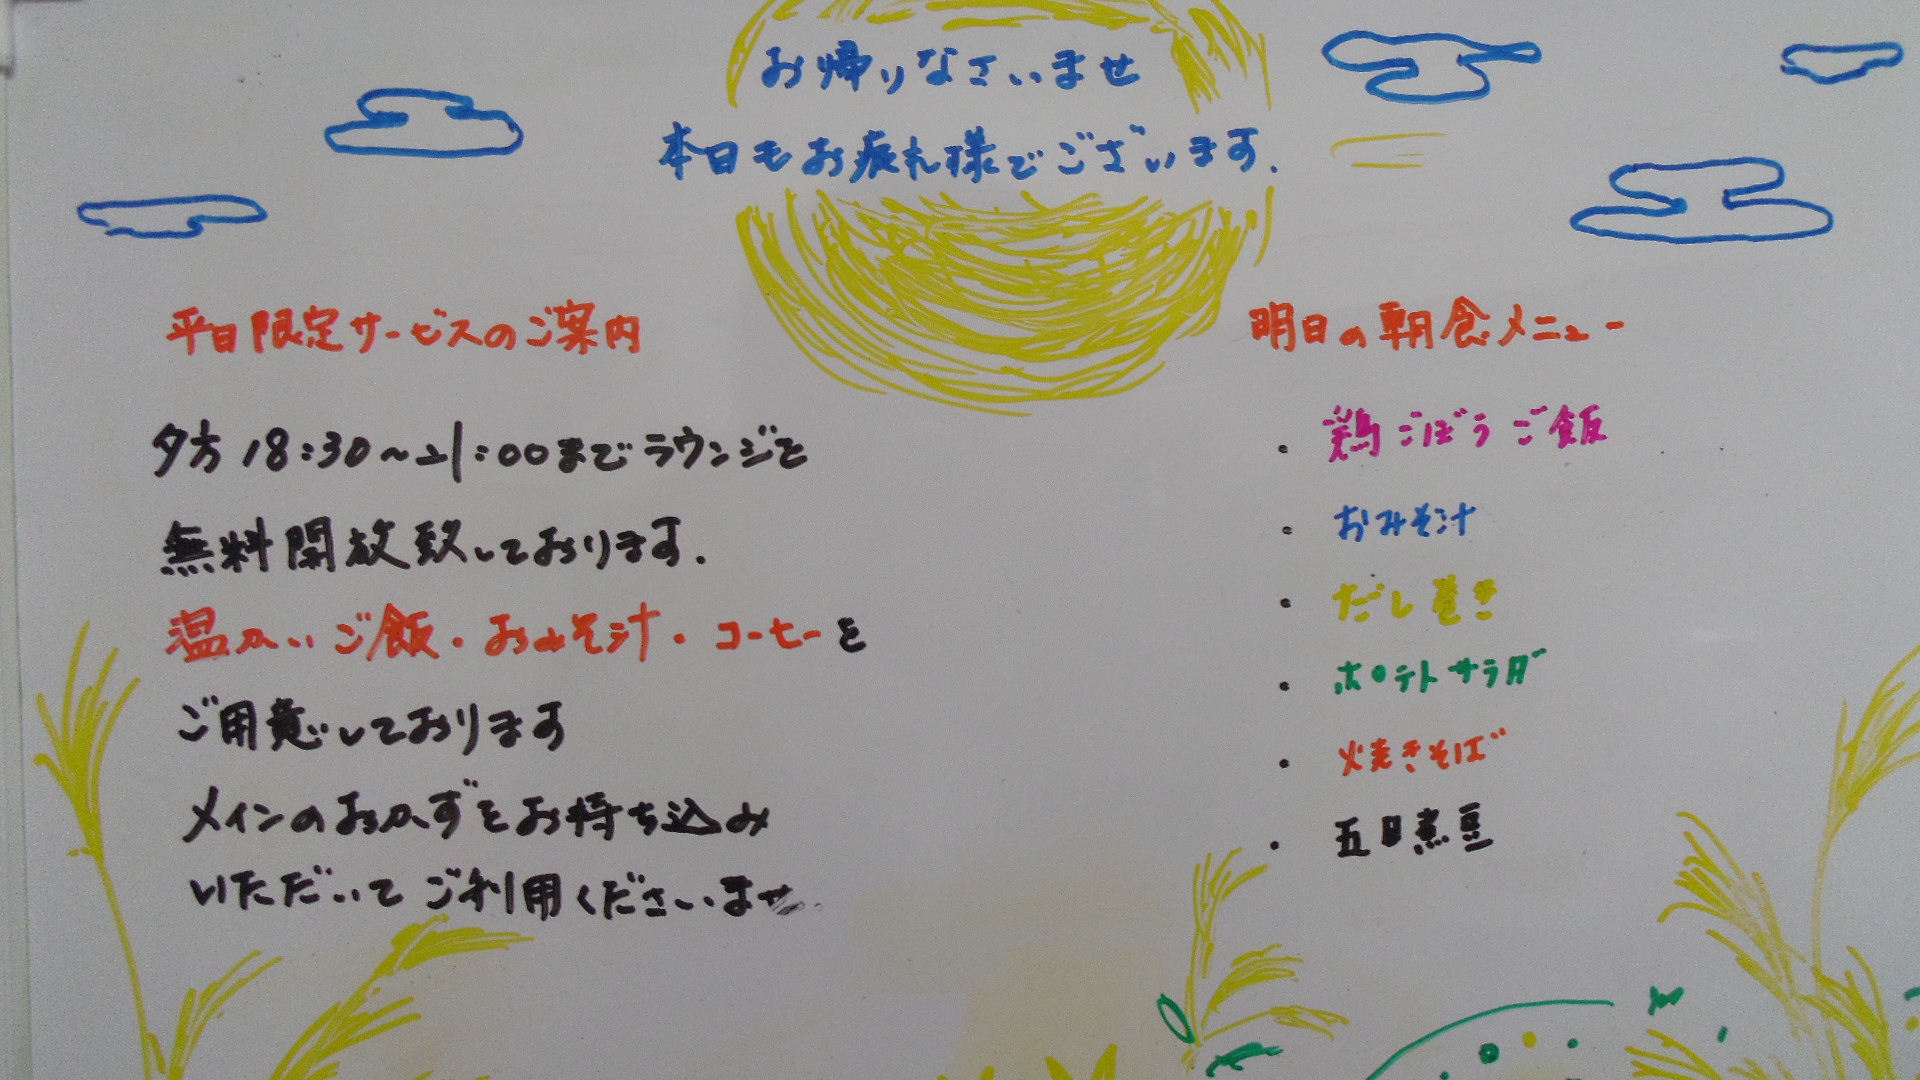 お帰りなさいませ
本日もお疲れ様でございます.
平日限定サービスのご案内
夕方 18:30～21:00までラウンジを
無料開放致しております.
温かいご飯・おみそ汁・コーヒーを
ご用意しております
メインのおかずをお持ち込み
いただいてご利用くださいませ.
明日の朝食メニュー
・ 鶏ごぼうご飯
・ おみそ汁
・ だし巻き
・ ポテトサラダ
・ 焼きそば
・ 五目煮豆